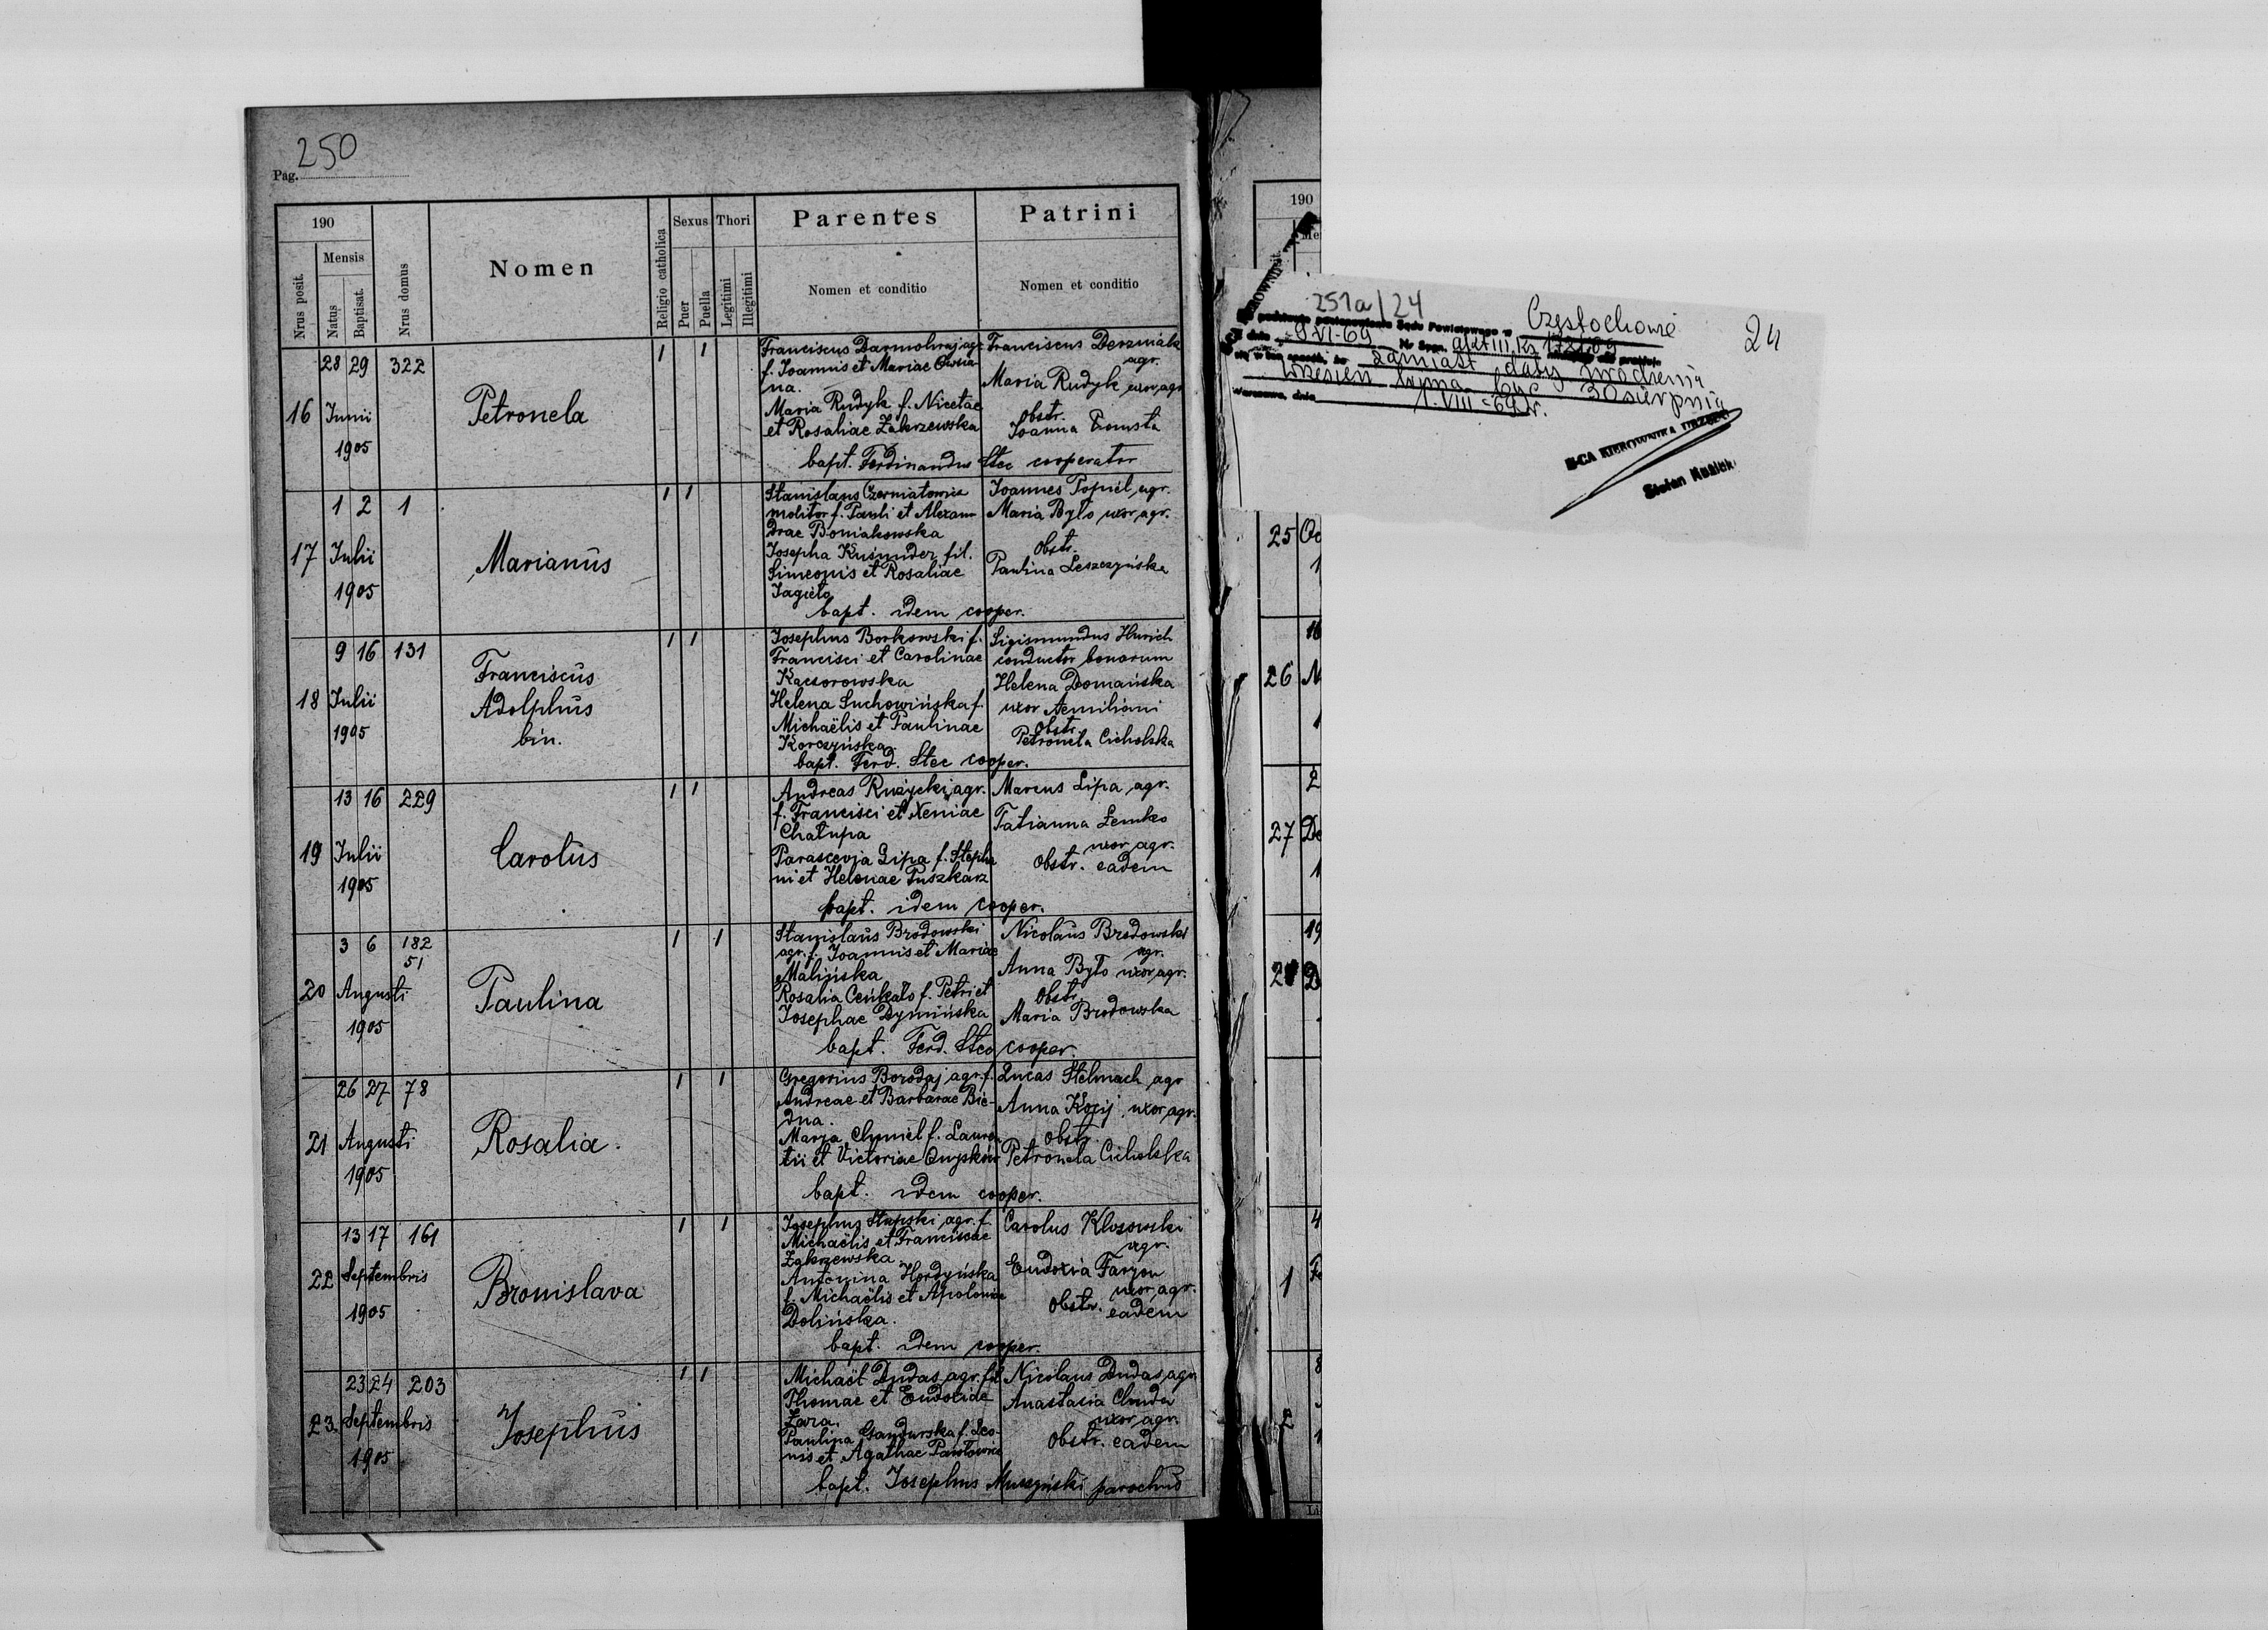 250
Pag.
190
Nrus posit.
Mensis
Natus
Baptisat.
Nrus domus
Nomen
Religio catholica
Sexus
Puer
Puella
Thori
Legitimi
Illegitimi
Parentes
Nomen et conditio
Patrini
Nomen et conditio
28 29 322
16 Junii
1905
Petronela
1 1
Franciscus Darmohraj agr.
f. Joannis et Mariae Owsia-
na.
Maria Rudyk f. Nicetae
et Rosaliae Zakrzewska
Franciscus Derzniak
agr.
Maria Rudyk uxor agr.
Obstr.
Joanna
bapt. Ferdinandus Stec cooperator
1 2 1
17 Julii
1905
Marianus
1 1
Stanislaus Czerniatowicz
molitor f. Pauli et Alexan-
drae Boniakowska
Josepha Kuśnider fil.
Simeonis et Rosaliae
Jagieło
Joannes Popiel agr.
Maria Było uxor agr.
Obstr.
Paulina Leszczyńska
bapt. idem cooper.
9 16 131
18 Julii
1905
Franciscus
Adolphus
bin.
1 1
Josephus Borkowski f.
Francisci et Carolinae
Kaczorowska
Helena Suchowińska f.
Michaëlis et Paulinae
Korczyńska
Sigismundus Hurich
conductor bonorum
Helena Domańska
uxor Aemiliani
Obstr.
Petronela Cicholska
bapt. Ferd. Stec cooper.
13 16 229
19 Julii
1905
Carolus
1 1
Andreas Rużycki agr.
f. Francisci et Xeniae
Chałupa
Parascevia Lipa f. Stepha
ni et Helenae Puszkarz
Marcus Lipa agr.
Tatianna Lemko
uxor agr.
Obstr. eadem
bapt. idem cooper.
3 6 182
51
20 Augusti
1905
Paulina
1 1
Stanislaus Brodowski
agr. f. Joannis et Mariae
Malińska
Rosalia Ceńkało f. Petri et
Josephae Dymińska
Nicolaus Brodowski
agr.
Anna Było uxor agr.
Obstr.
Maria Brodowska
bapt. Ferd. Stec cooper.
26 27 78
21 Augusti
1905
Rosalia.
1 1
Gregorius Borodaj agr. f.
Andreae et Barbarae Bie-
dna.
Maria Chmiel f. Lauren
tii et Victoriae
Lucas Stelmach agr
Anna Kocij uxor agr.
Obstr.
Petronela Cicholska
bapt. idem cooper.
13 17 161
22 Septembris
1905
Bronislava
1 1
Josephus Słupski agr. f.
Michaëlis et Franciscae
Zakrzewska
Antonina Hordyńska
f. Michaëlis et Apoloniae
Dolińska.
Carolus Klosowski
agr.
Eudoxia Faryon
uxor agr.
Obstr. eadem
bapt. idem cooper.
23 24 203
23 Septembris
1905
Josephus
1 1
Michaël Dudas agr. fil
Thomae et Eudoxiae
Zara.
Paulina Gandurska f. Leo-
nis et Agathae Pawłowicz
Nicolaus Dudas agr
Anastasia Chuda
uxor agr.
Obstr. eadem
bapt. Josephus Muszyński parochus
190
251a/24
24
Na podstawie postanowienia Sądu Powiatowego w Częstochowie
z dnia 9-VI-69 Nr Spra.
się w ten sposób, że zamiast daty urodzenia
wrzesień być 30 sierpnia
Warszawa, dnia 1.VIII-69 r.
Z-CA KIEROWNIKA URZĘDU
Stefan
25 Oc
1
16
26 N
1
2
27 De
1
19
28 D
4
1 Fe
8
2
1